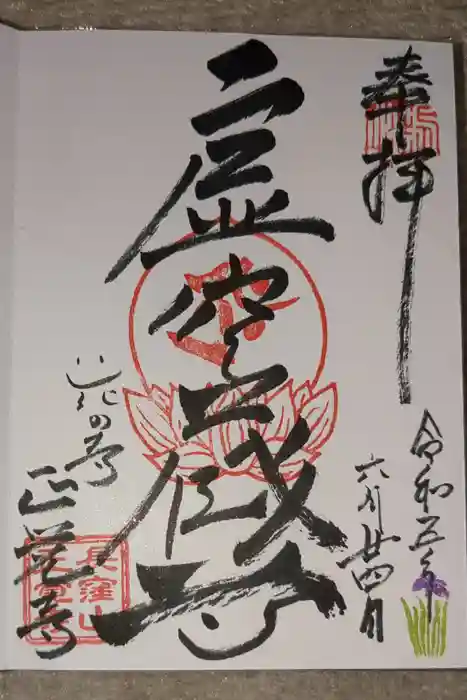 奉拝
令和五年
六月廿四日
虚空蔵尊
花の寺
正覚寺
長窪山